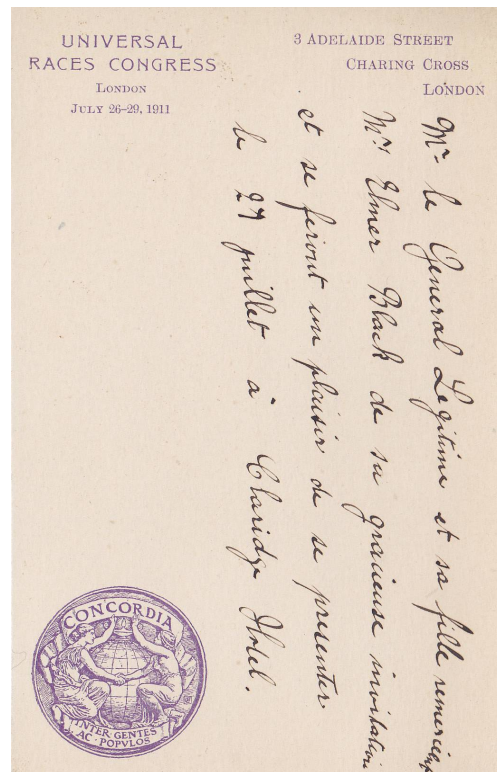 UNIVERSAL
RACES CONGRESS
LONDON
JULY 26-29, 1911
3 ADELAIDE STREET
CHARING CROSS
LONDON
Mr le General Légitime et sa fille remercient
Mrs Elmer Black de sa gracieuse invitation
et se feront un plaisir de se presenter
le 27 juillet à Claridge Hotel.
CONCORDIA
INTER GENTES
AC · POPVLOS